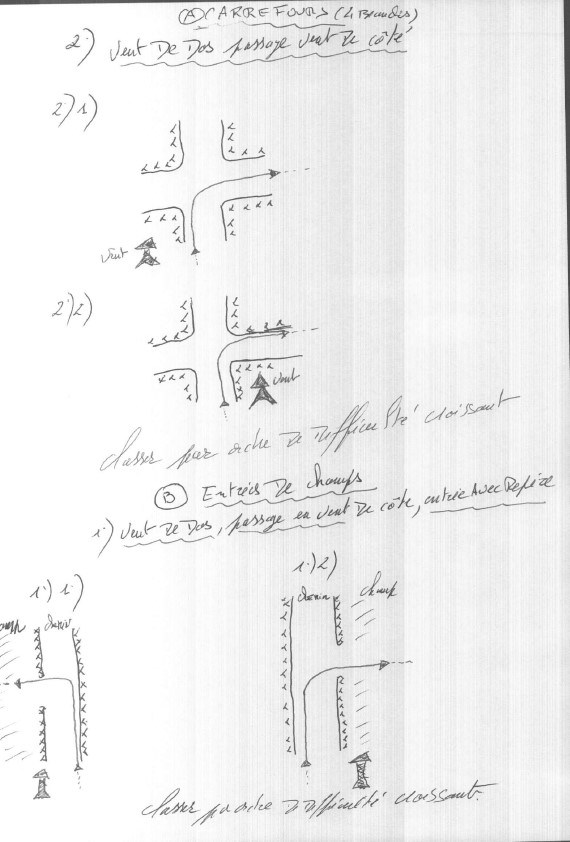 (A) CARREFOURS (4 Branches)
2°) Vent De Dos passage vent de côté
2°)1)
Vent
2°)2)
Vent
Classer par ordre de difficulté croissant
(B) Entrées De champs
1°) Vent De Dos, passage en vent de côté, entrée Avec Refize
1°)1°)
1°)2)
champ
chemin
chemin
champ
Classer par ordre de difficulté croissant.